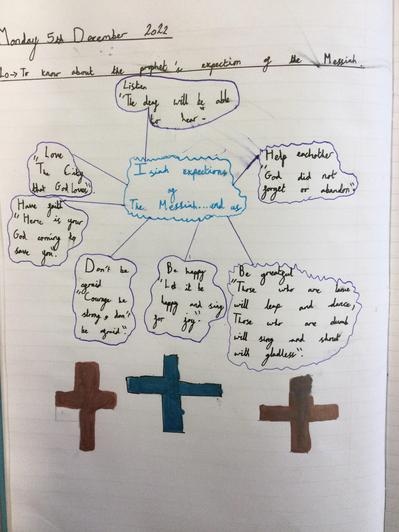 Monday 5th December 2022
Lo→ To know about the prophet's expection of the Messiah.
Listen
"The deaf will be able
to hear"
"Love
The City
that God Loves"
Isiah expections
of
The Messiah...and us
Help eachother
"God did not
forget or abandon"
Have faith
"Here is your
God coming to
save you".
Don't be
afraid
"Courage be
strong, don't
be afraid".
Be happy
"Let it be
happy and sing
for joy".
Be greatful
"Those who are lame
will leap and dance,
Those who are dumb
will sing and shout
with gladless".